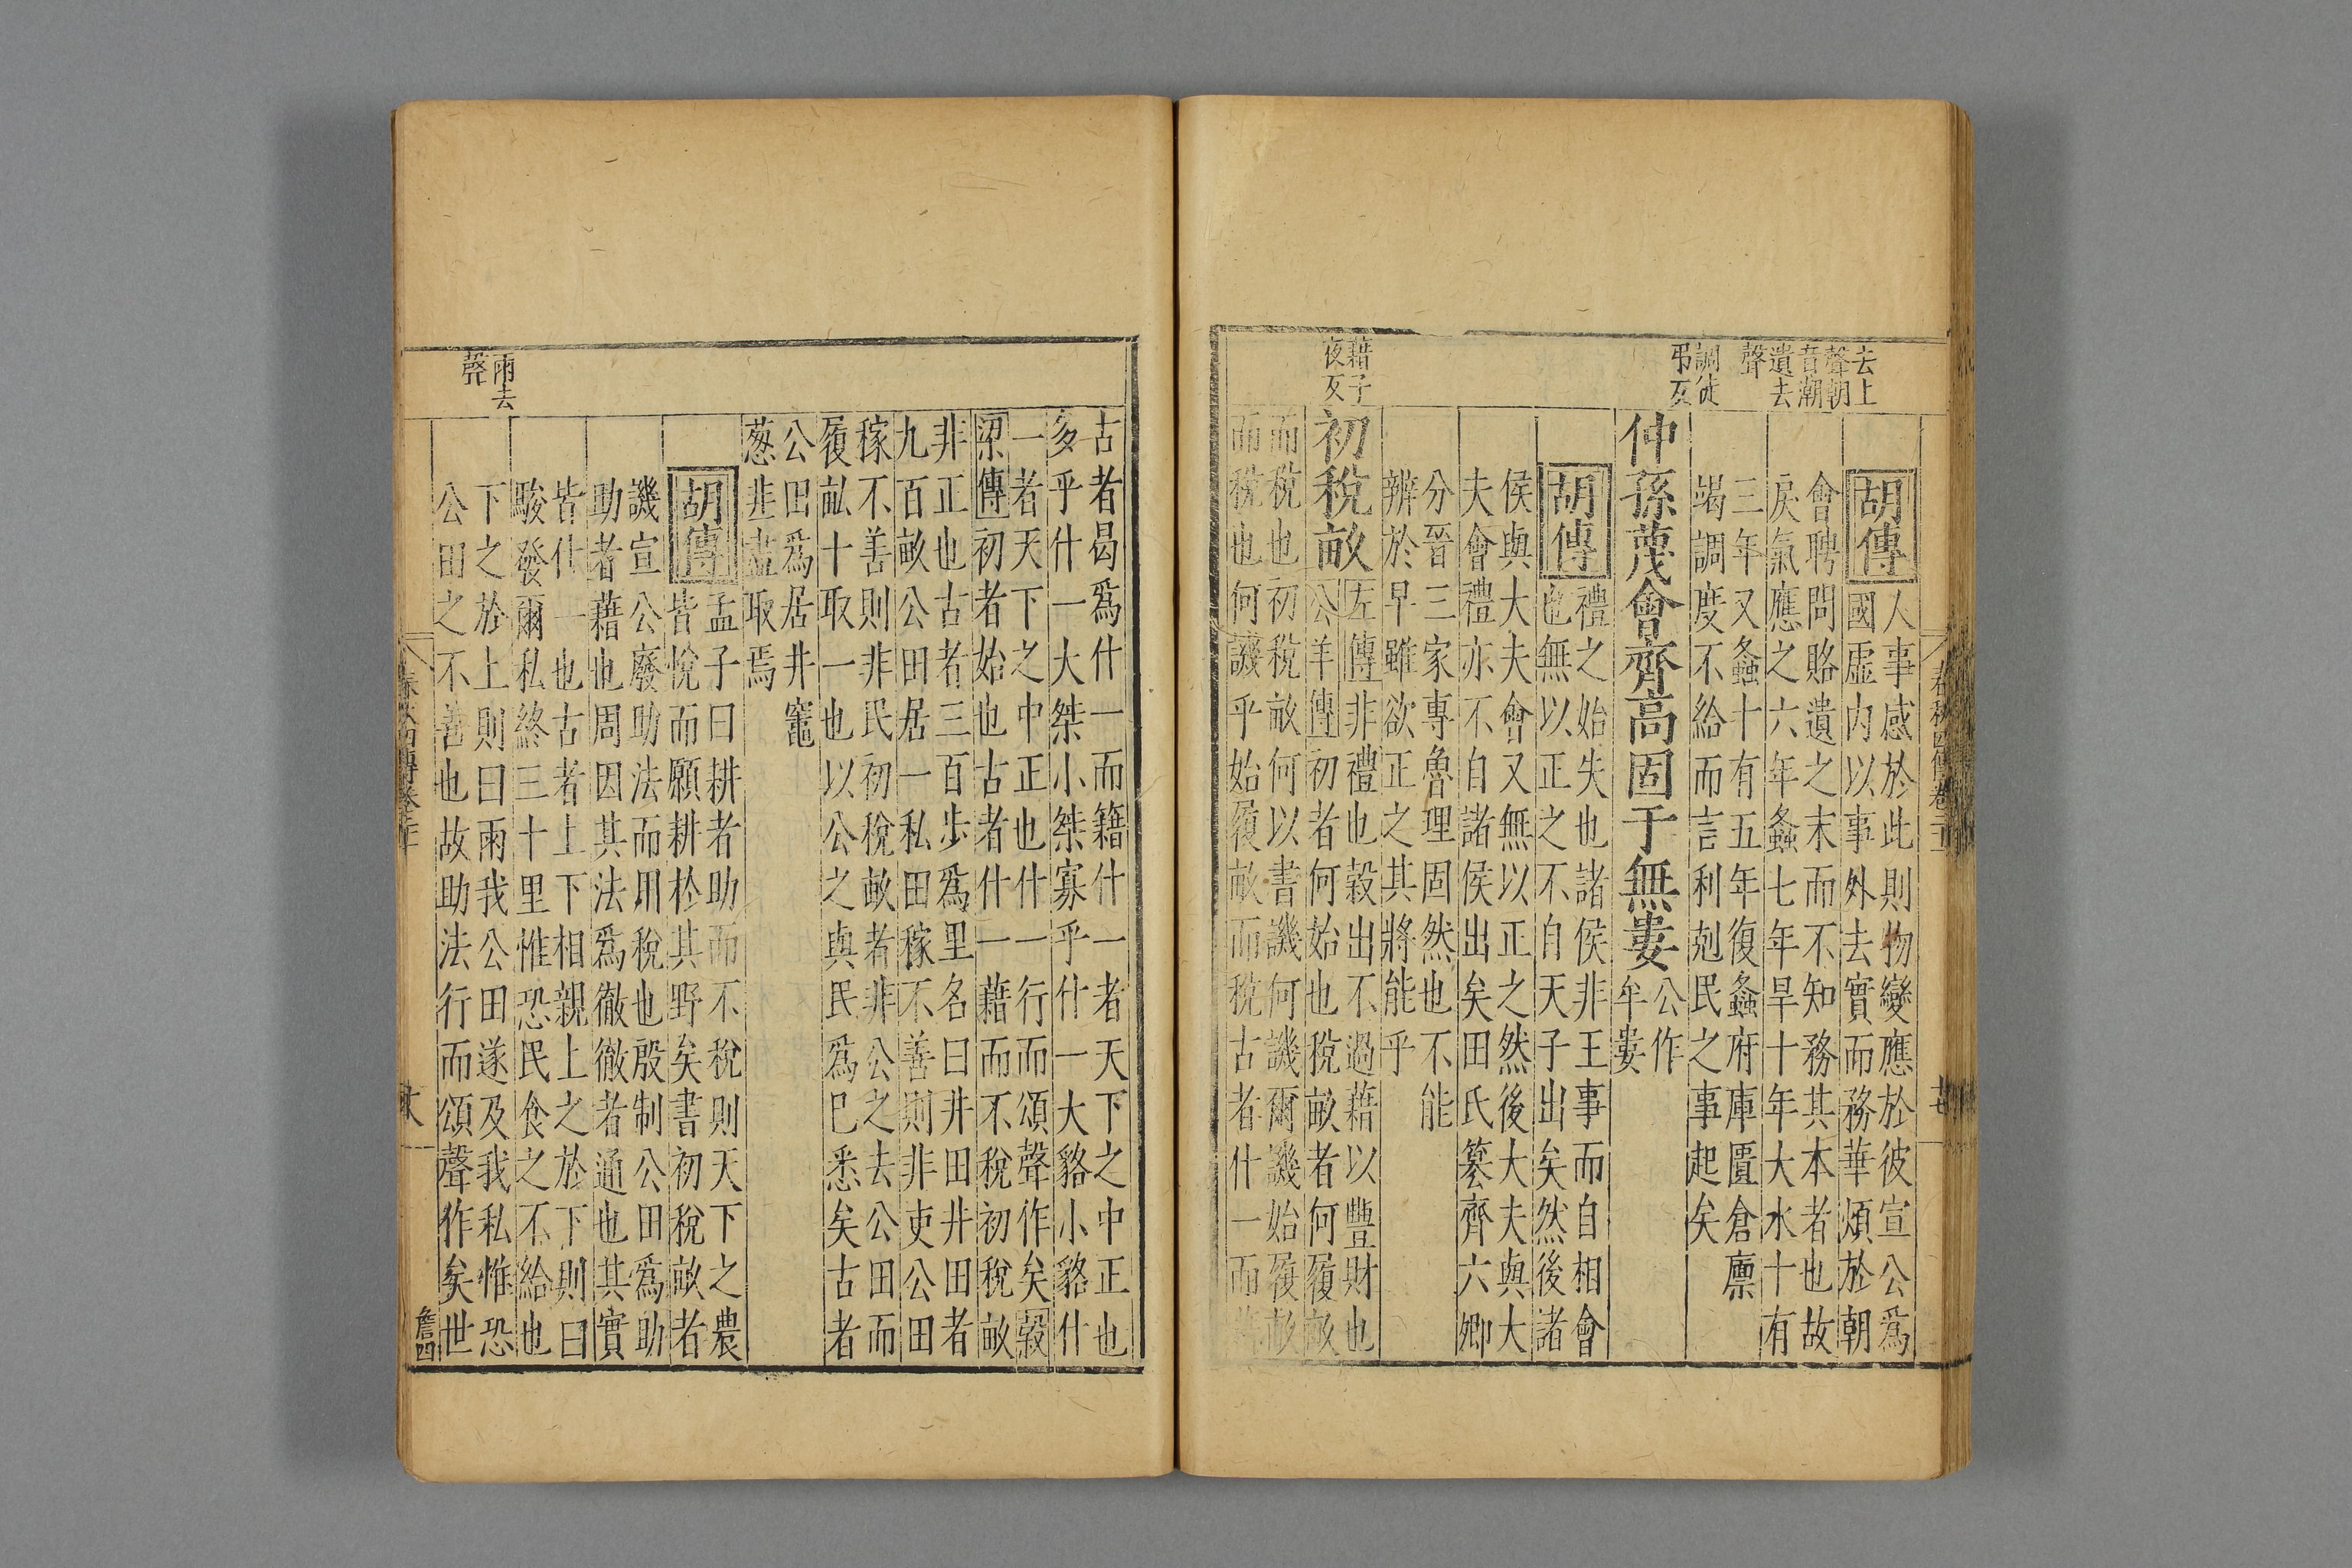 去上
聲朝
音潮
遺去
聲
調徒
弔反
藉子
夜反
胡傳
人事感於此則物變應於彼宣公爲
國虛內以事外去實而務華煩於朝
會聘問賂遺之末而不知務其本者也故
戾氣應之六年螽七年旱十年大水十有
三年又螽十有五年復螽府庫匱倉廩
竭調度不給而言利剋民之事起矣
仲孫蔑會齊高固于無婁
公作
牟婁
胡傳
禮之始失也諸侯非王事而自相會
也無以正之不自天子出矣然後諸
侯與大夫會又無以正之然後大夫與大
夫會禮亦不自諸侯出矣田氏篡齊六卿
分晉三家專魯理固然也不能
辨於早雖欲正之其將能乎
初稅畝
左傳非禮也穀出不過藉以豐財也
公羊傳初者何始也稅畝者何履畝
而稅也初稅畝何以書譏何譏爾譏始履畝
而稅也何譏乎始履畝而稅古者什一而藉
春秋四傳卷
古者曷爲什一而籍什一者天下之中正也
多乎什一大桀小桀寡乎什一大貉小貉什
一者天下之中正也什一行而頌聲作矣穀
梁傳初者始也古者什一藉而不稅初稅畝
非正也古者三百步爲里名曰井田井田者
九百畝公田居一私田稼不善則非吏公田
稼不善則非民初稅畝者非公之去公田而
履畝十取一也以公之與民爲已悉矣古者
公田爲居井竈
葱韭盡取焉
胡傳
孟子曰耕者助而不稅則天下之農
皆悅而願耕於其野矣書初稅畝者
譏宣公廢助法而用稅也殷制公田爲助
助者藉也周因其法爲徹徹者通也其實
皆什一也古者上下相親上之於下則曰
駿發爾私終三十里惟恐民食之不給也
下之於上則曰雨我公田遂及我私惟恐
公田之不善也故助法行而頌聲作矣世
雨去
聲
詹四